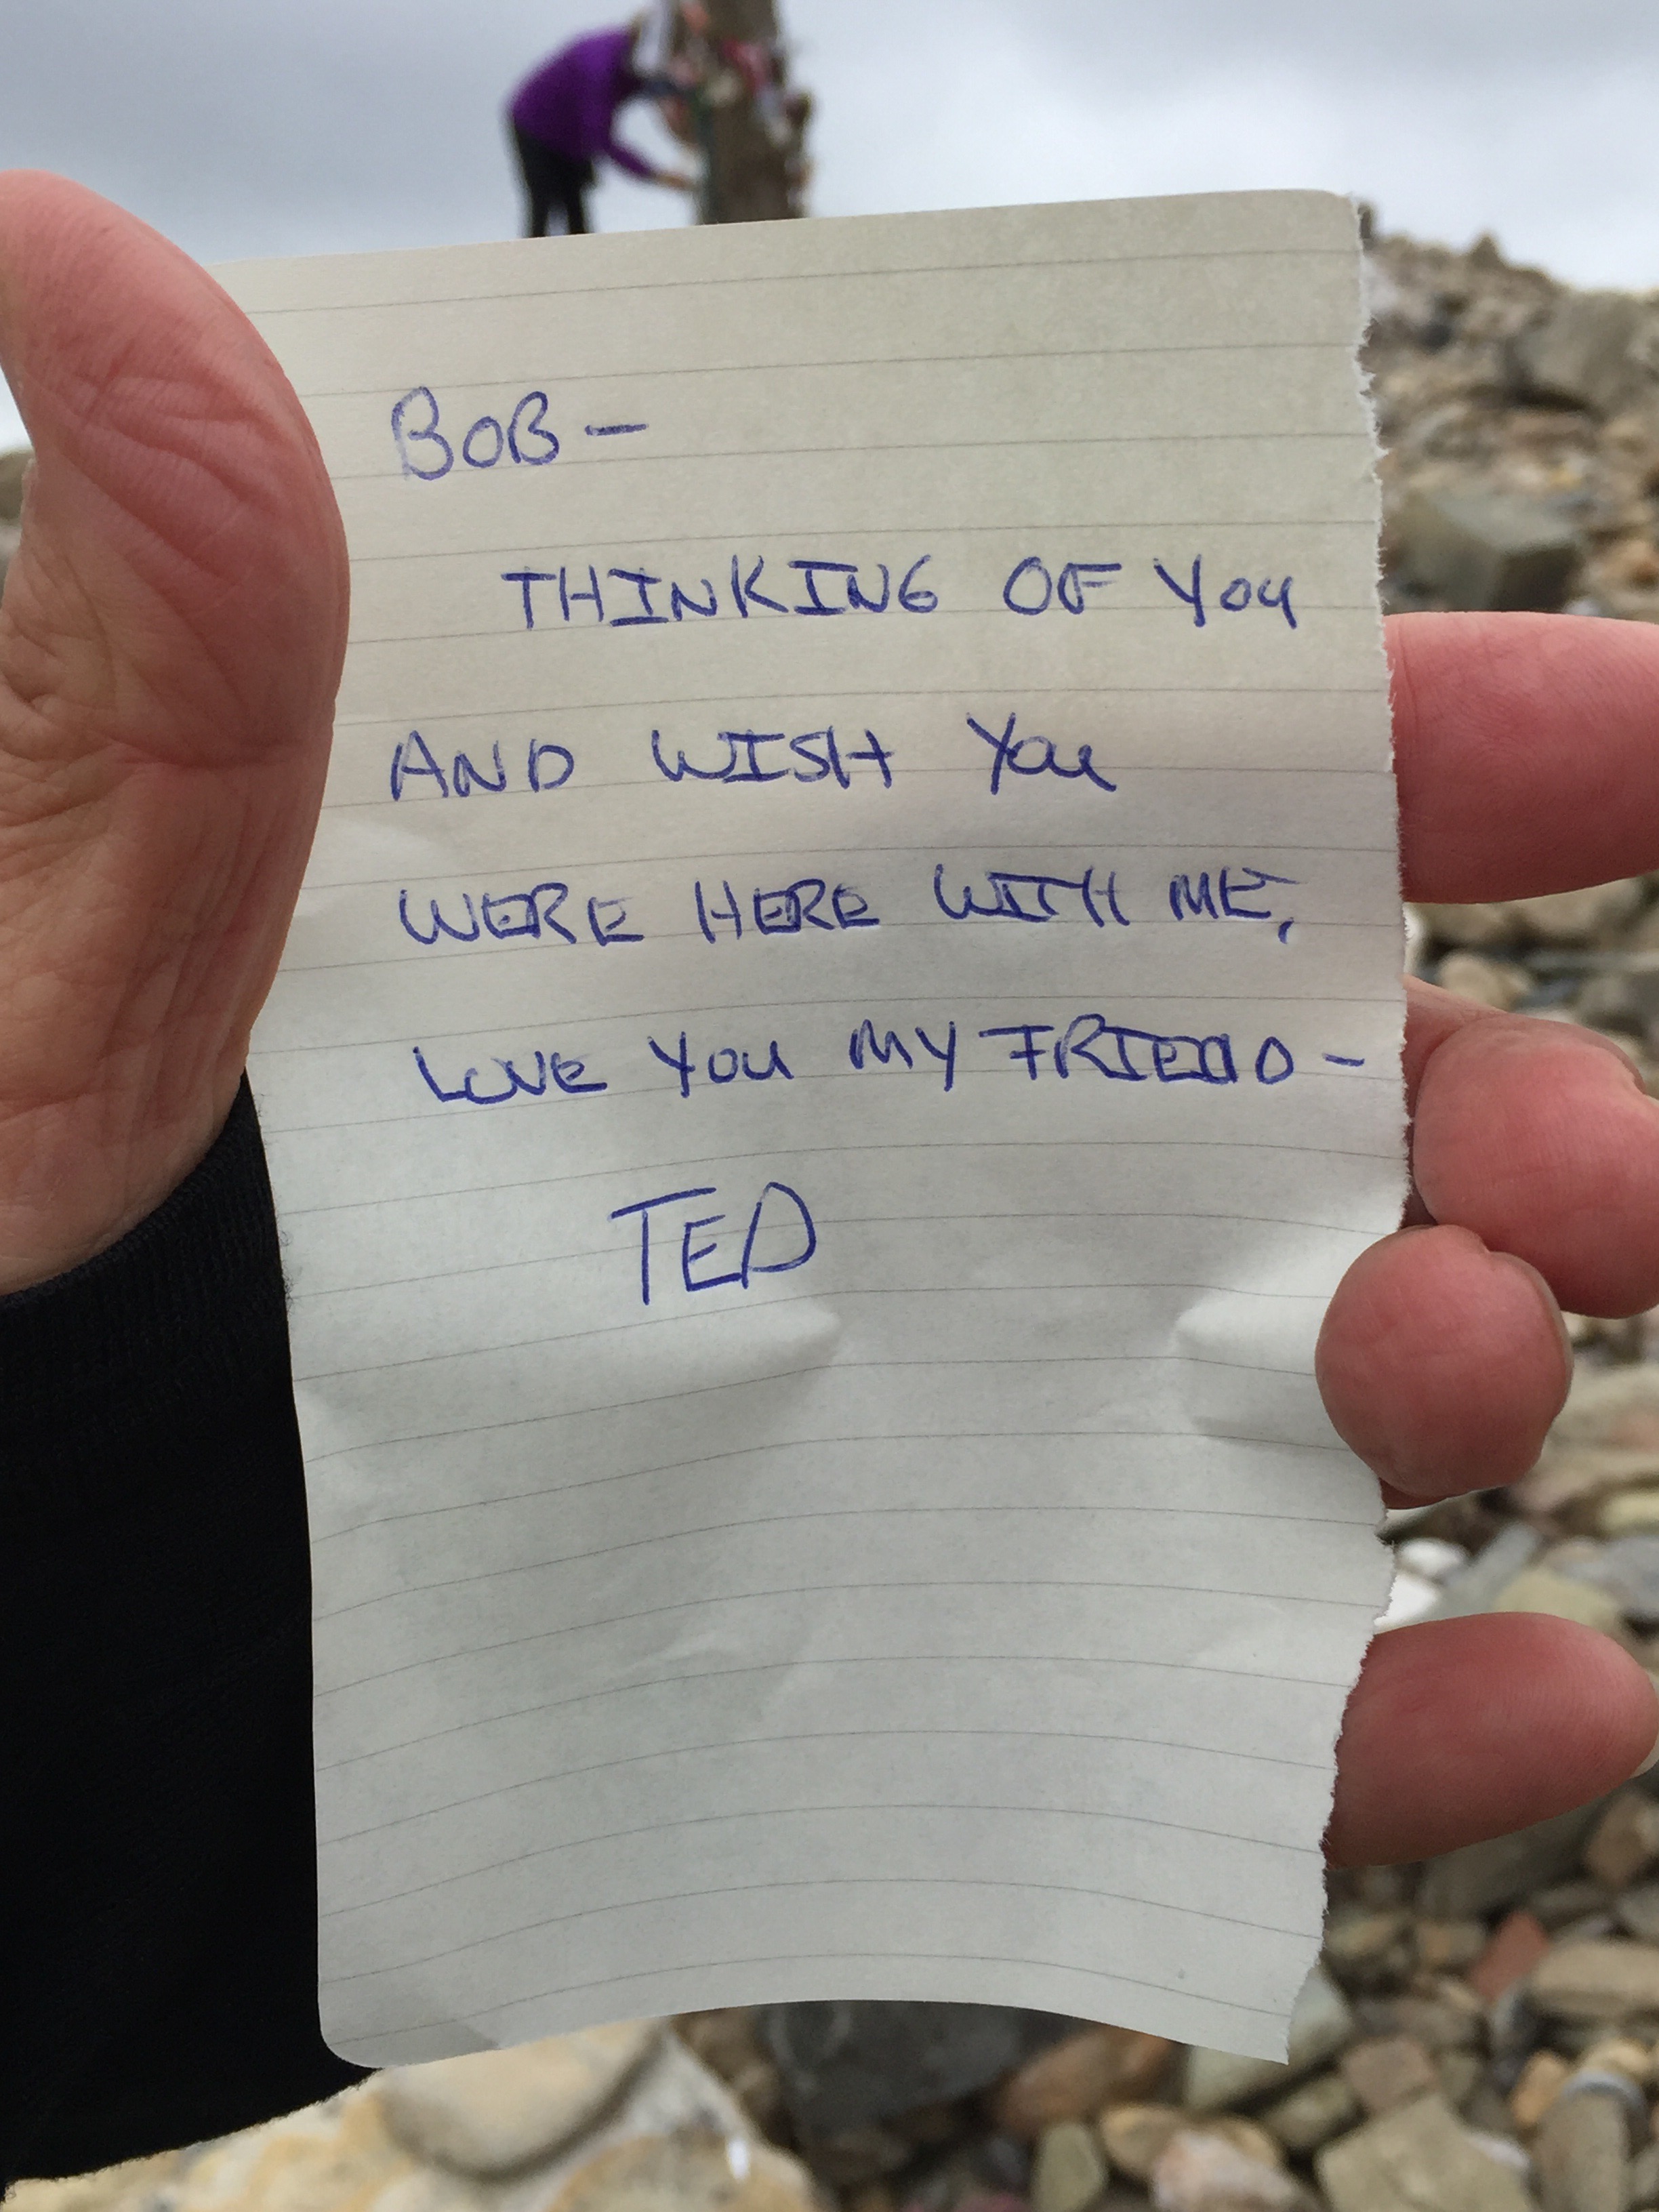 BOB—
THINKING OF YOU
AND WISH YOU
WERE HERE WITH ME,
LOVE YOU MY FRIEND—
TED